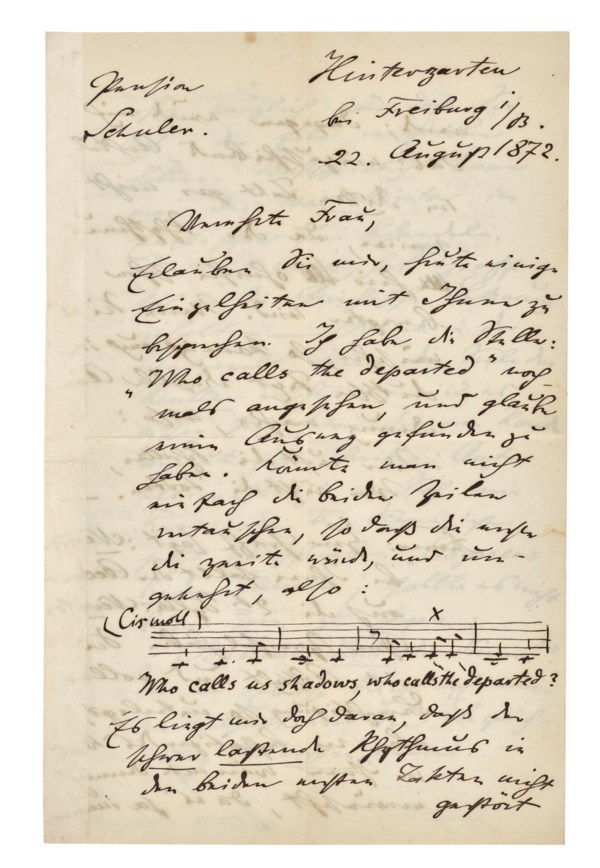 Pension
Schuler.
Hinterzarten
bei Freiburg i/B.
22. August 1872.
Verehrte Frau,
Erlauben Sie mir, heute einige
Einzelheiten mit Ihnen zu
besprechen. Ich habe die Stelle:
"Who calls the departed" noch-
mals angesehen, und glaube
einen Ausweg gefunden zu
haben. Könnte man nicht
einfach die beiden Zeilen
vertauschen, so daß die erste
die zweite würde, und um-
gekehrt, also:
(Cis moll)
x
Who calls us shadows, who calls the departed?
Es liegt mir doch daran, daß der
schwer lastende Rhythmus in
den beiden ersten Takten nicht
gestört